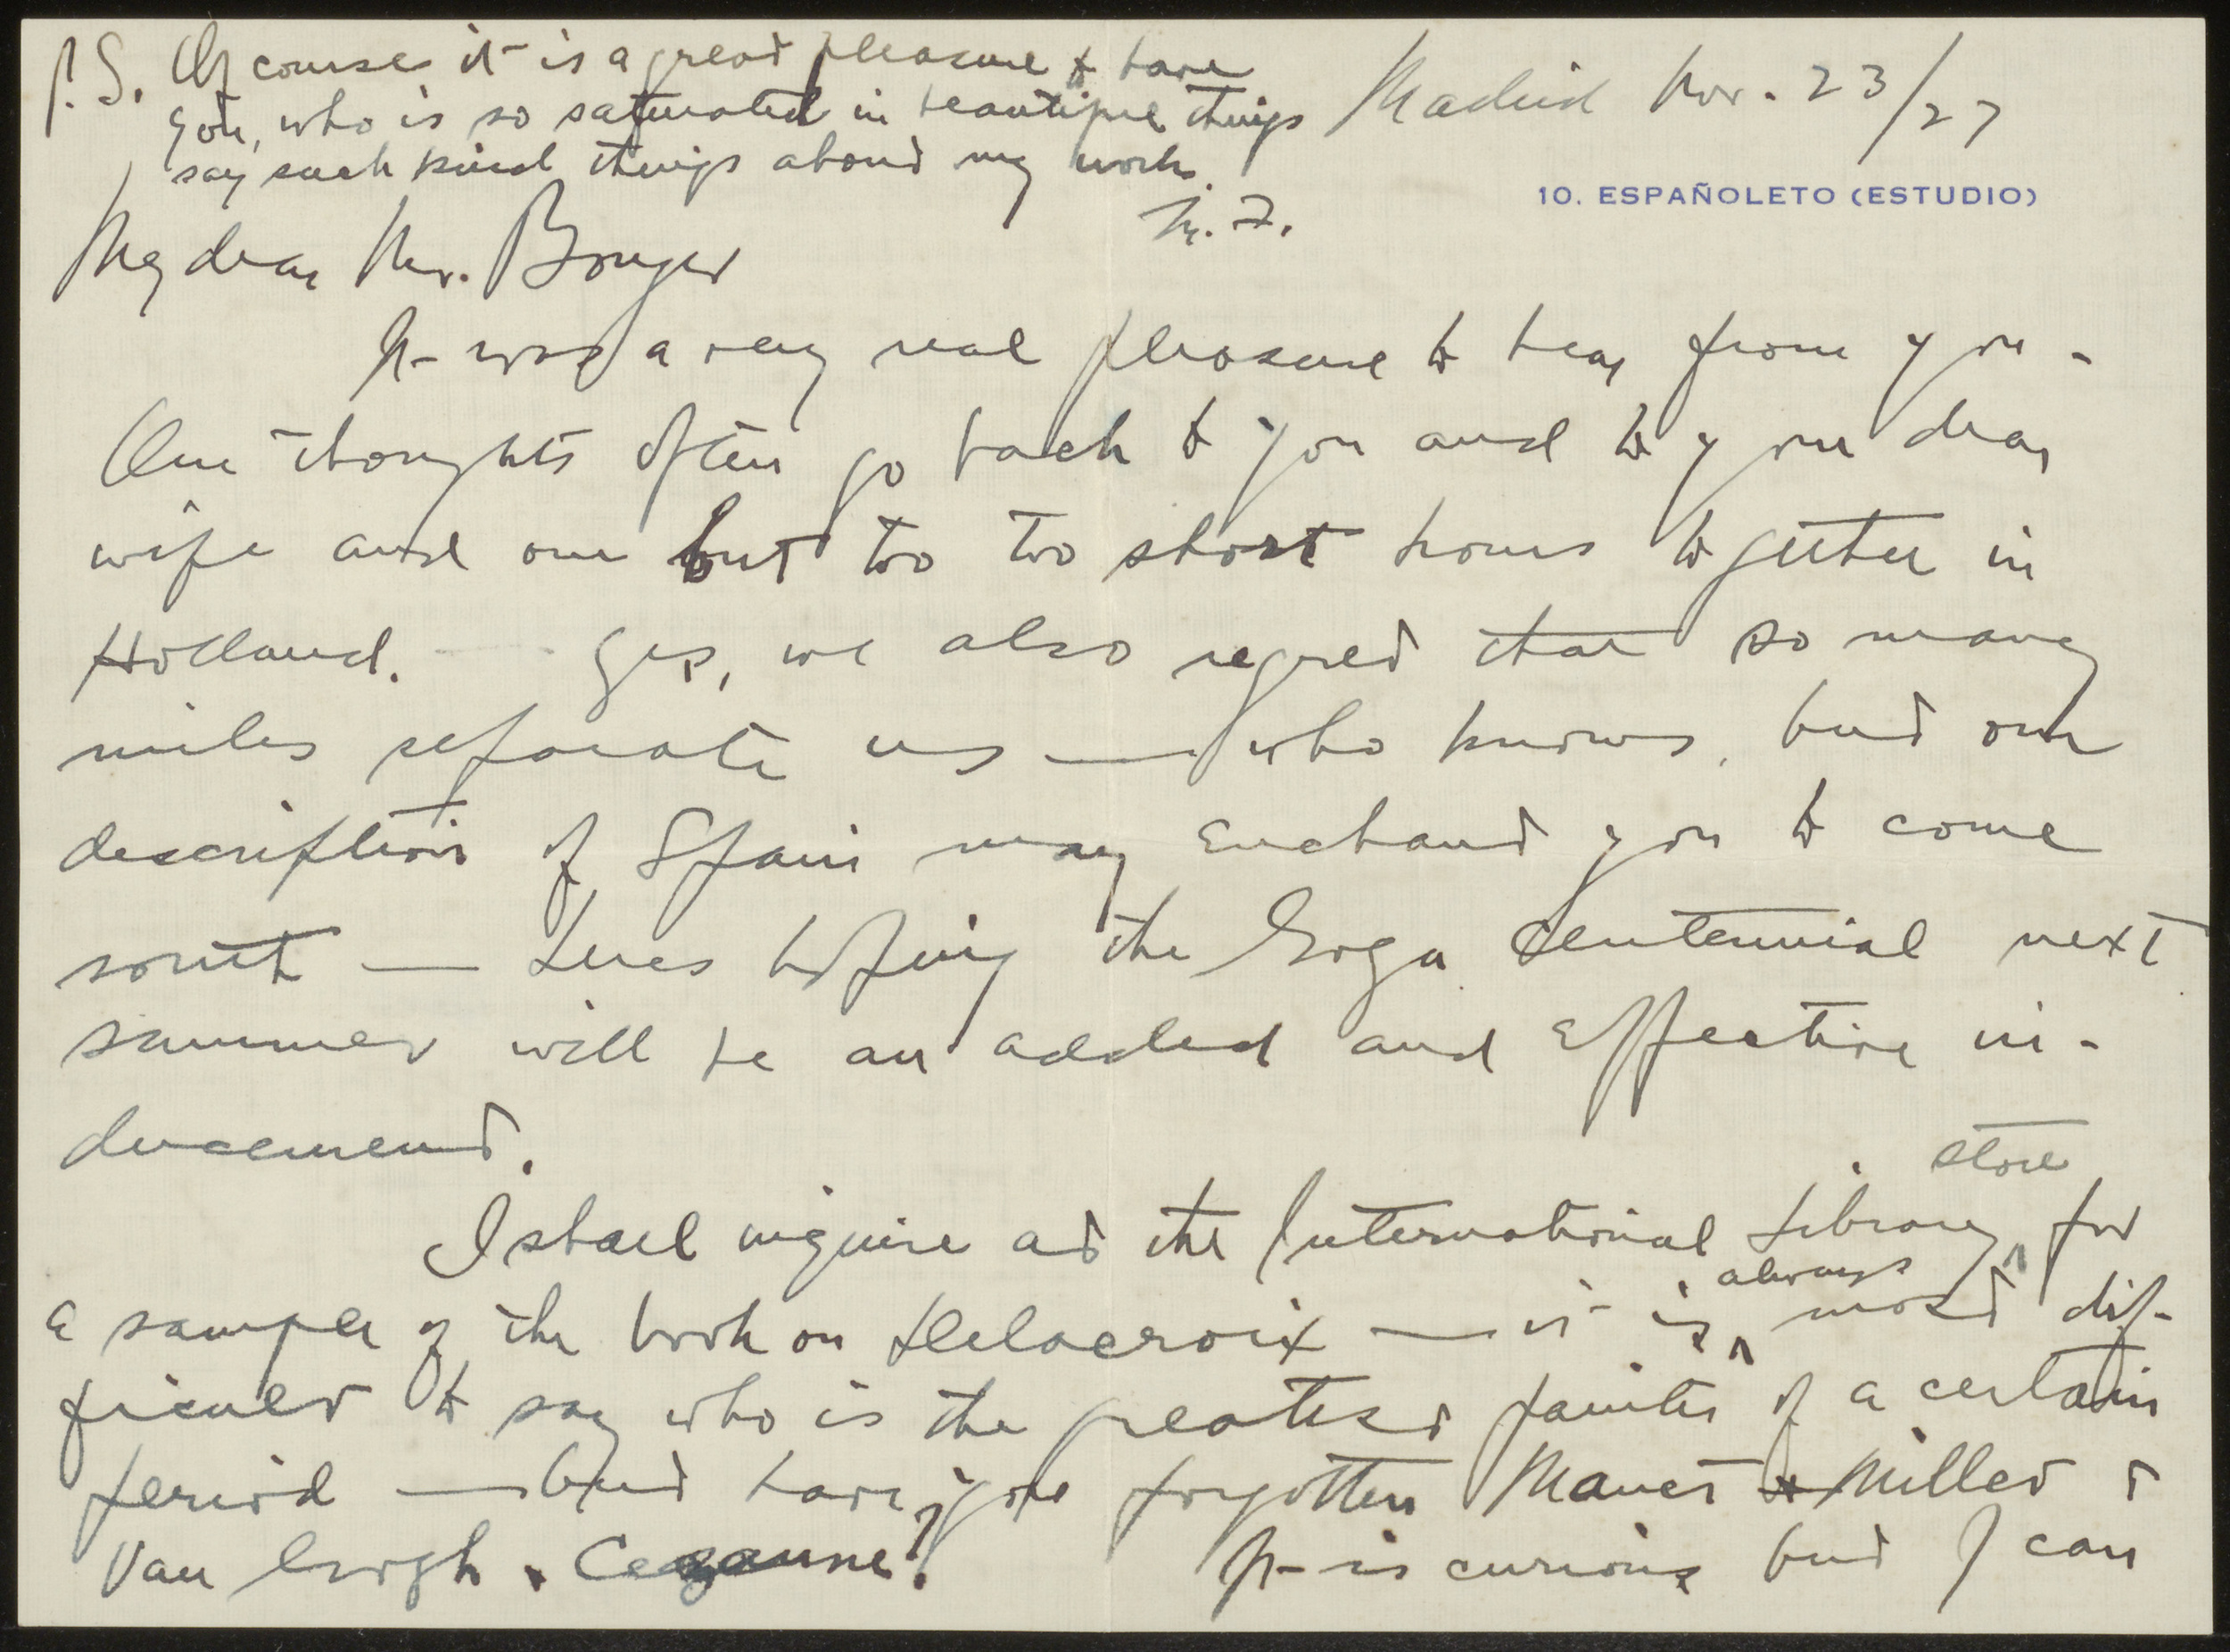 P.S. Of course it is a great pleasure to have
you, who is so saturated in beautiful things
say such kind things about my work.
M. F.
Madrid Nov. 23/27
10. ESPAÑOLETO (ESTUDIO)
My dear Mr. Bonger
It was a very real pleasure to hear from you -
Our thoughts often go back to you and to your dear
wife and our but too too short hours together in
Holland. Yes, we also regret that so many
miles separate us — who knows, but our
description of Spain may enchant you to come
south — Lets hoping the Goya Centennial next
summer will be an added and effective in-
ducement.
I shall inquire at the International Library store for
a sample of the book on Delacroix — it is always most dif-
ficult to say who is the greatest painter of a certain
period — but have you forgotten Manet Millet &
Van Gogh & Cezanne? It is curious but I can